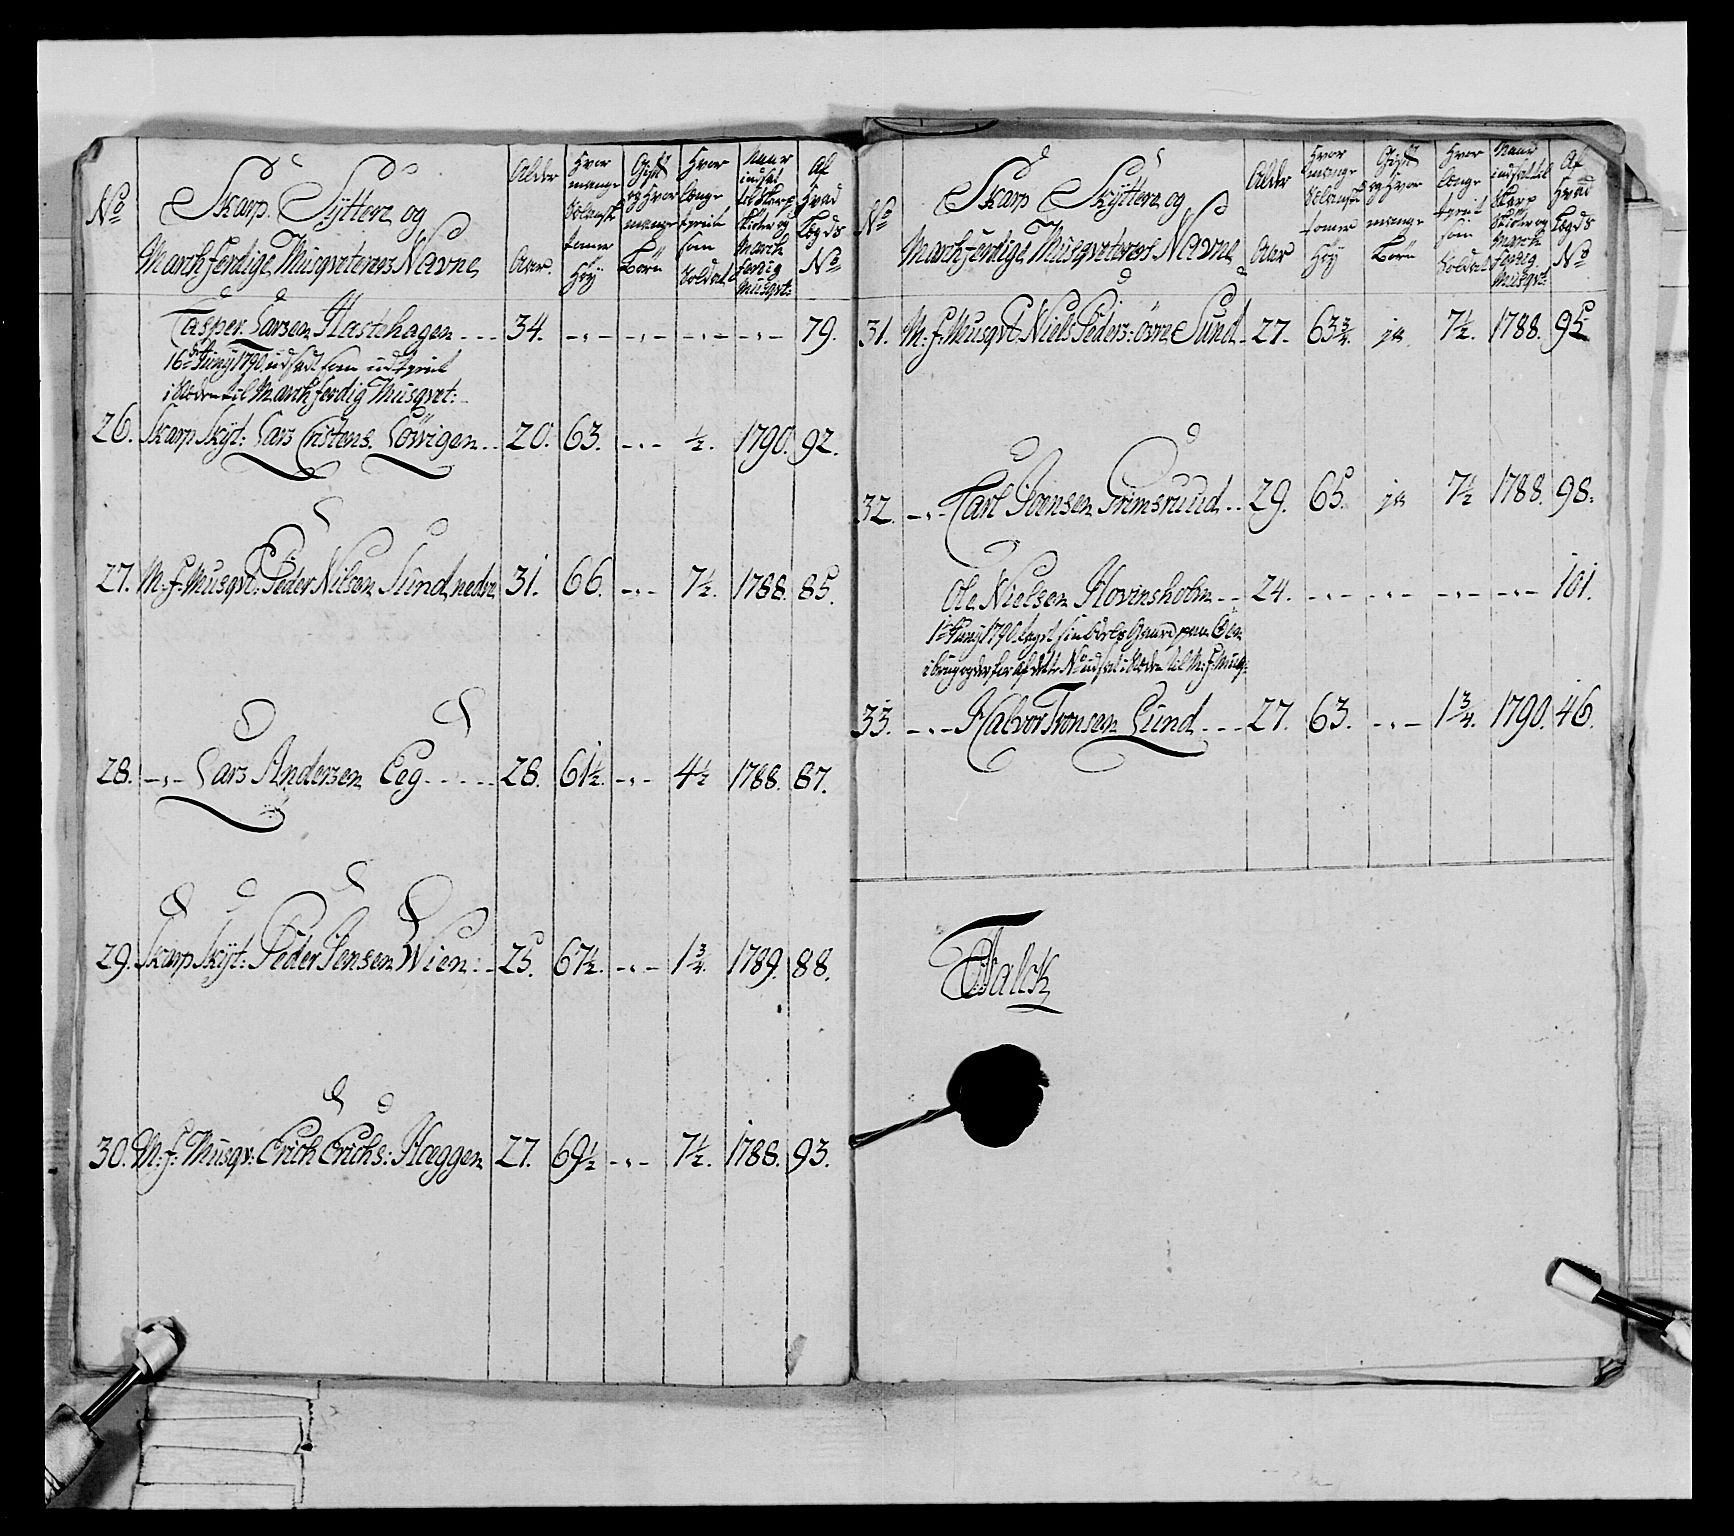 No
Skarp Skytter og
Marchferdige Musqveterers Navne
Alder
Aar
Hvor
mange
Solansk
tomer
Höy
Gift
og Hvor
mange
Börn
Hvor
længe
tient
som
Soldat
Naar
indsat
til Skarp
skytter og
March
ferdig
Musqvt:
Af
Hvad
Legds
No
Casper Larsen Hastehagen --- 34. -.- -.- -.- -.- 79.
16de Juny 1790 udsadt som udtient
i stæden til Marchferdig Musqvet:
26. Skarp Skyt: Lars Cristens. Lövigen -- 20. 63. -.- ½. 1790. 92.
27. M: f: Musqvt: Peder Nilsen Sund nedre 31. 66. -.- 7½. 1788. 85.
28. -.- Lars Andersen Eeg ----- 28. 61½. -.- 4½ 1788. 87.
29. Skarp Skyt: Peder Jensen Wien: - 25. 67½. -.- 1¾. 1789. 88.
30. M: f: Musqv: Erich Erichs: Hæggen 27. 69½ -.- 7½. 1788. 93.
No
Skarp Skytter og
Marchferdige Musqveterers Navne
Alder
Aar
Hvor
mange
Solansk
tomer
Höy
Gift
og Hvor
mange
Börn
Hvor
længe
tient
som
Soldat
Naar
indsat til
Skarp
Skütter og
March
ferdig
Musqvt:
Af
Hvad
Legds
No
31. M: f: Musqvt Niels Peders: övre Sund - 27. 63¾. ja 7½. 1788. 95
32. -.- Carl Svensen Grimsruud -- 29. 65. ja 7½ 1788. 98.
Ole Nielsen Hovinsholm -- 24. -.- -.- -.- -.- 101.
1te Juny 1790
33. -.- Halvor Tronsen Lund --- 27. 63. -.- 1¾. 1790. 46.
Falck